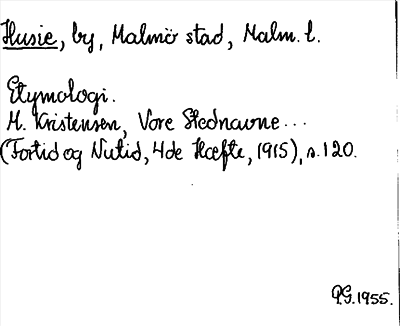 Husie, by, Malmö stad, Malm. l.
Etymologi.
M. Kristensen, Vore Stednavne...
(Fortid og Nutid, 4de Hæfte, 1915), s. 120.
P.G. 1955.